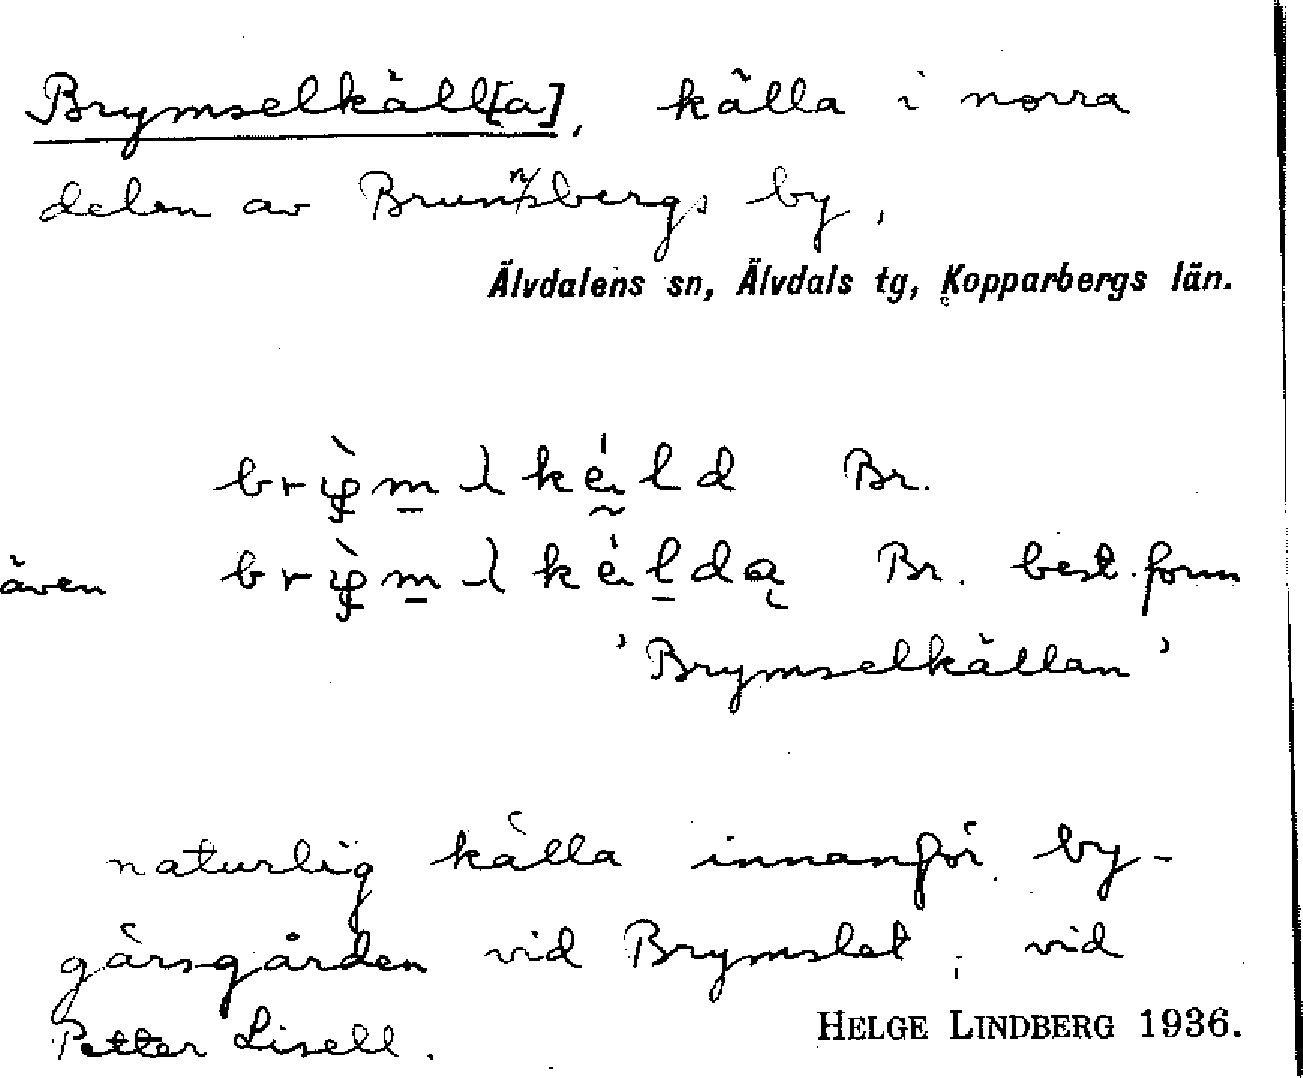 Brymselkäll[a], källa i norra
delen av Brunnsbergs by,
Älvdalens sn, Älvdals tg, Kopparbergs län.
Br.
även Br. best. form
'Brymselkällan'
naturlig källa innanför by-
gärsgården vid Brymslet; vid
Petter Lisell.
HELGE LINDBERG 1936.